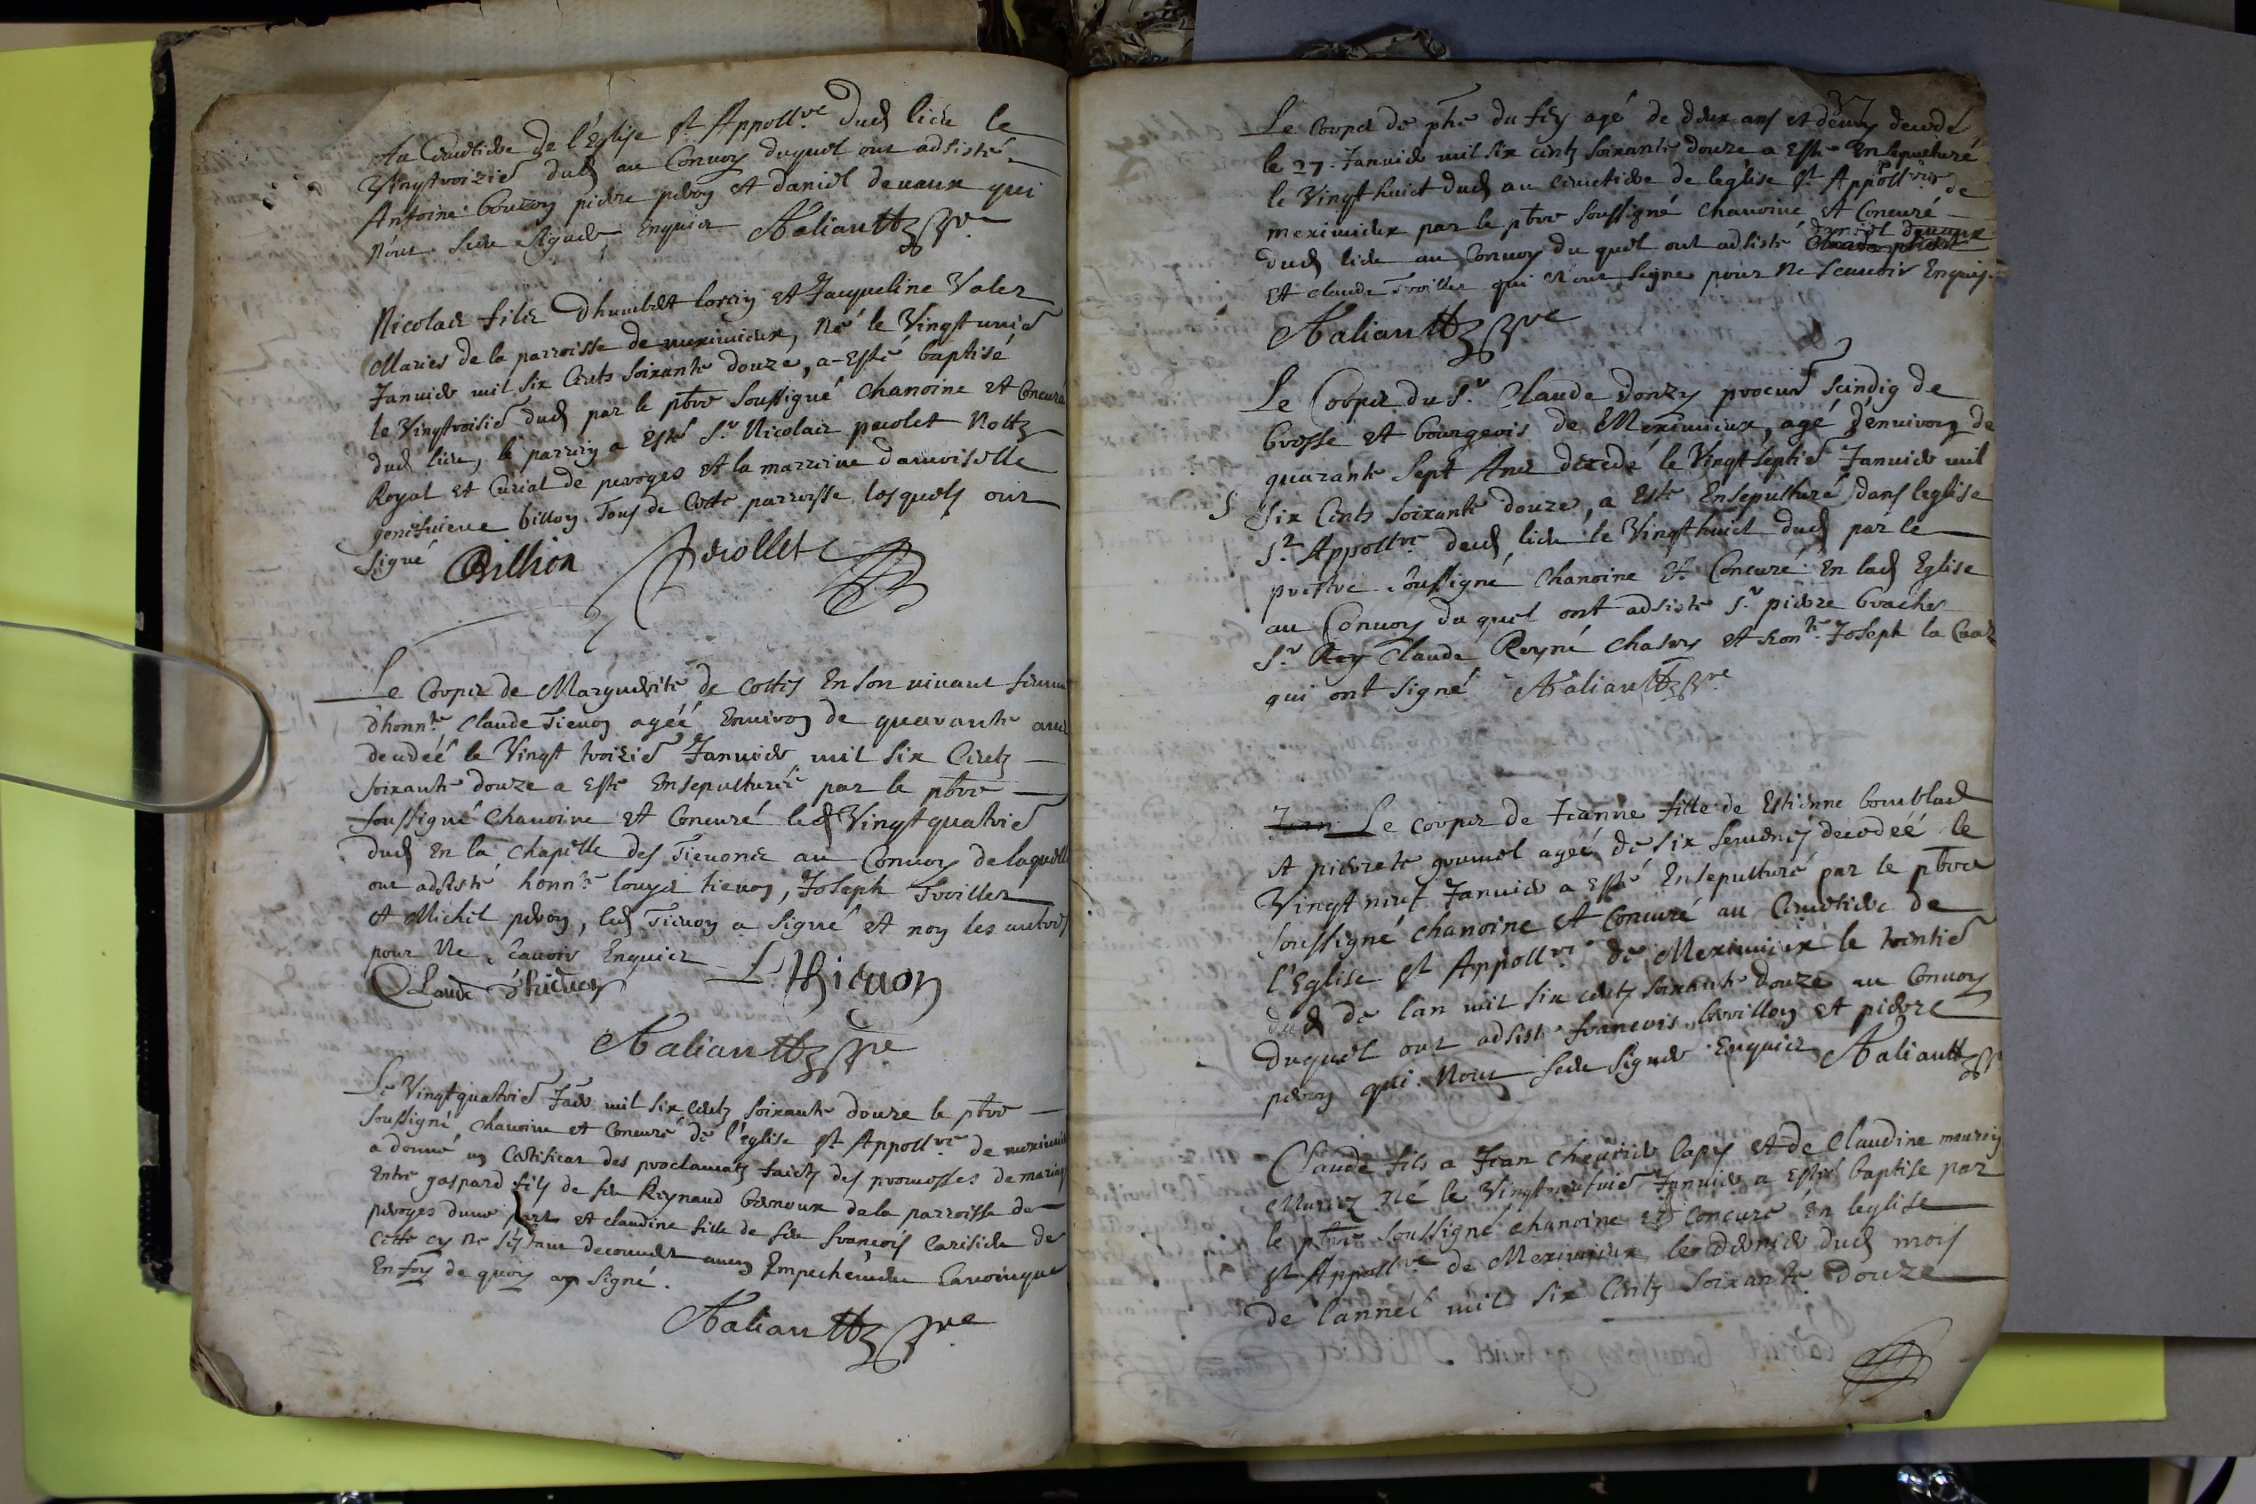 Au Cimetiere de l'Eglise St Appollre dud lieu le
Vingtroizie dud au Convoy duquel ont adsisté
Antoine bouvon pierre peron et daniel devaux qui
n'ont sceu signer enquis Aaliantz pbre
Nicolas filz d'humbert lorin et Jacqueline Valer
Maries de la parroisse de meximieux, né le Vingt unie
Janvier mil six Cents soixante douze, a esté baptisé
le Vingtroisie dud par le pbre soussigné Chanoine et Concuré
dud lieu, le parrin a Esté Sr Nicolas perolet Nottre
Royal et Curial de peroges et la marrine damoiselle
genevieve billion tous de Cette parroisse lesquels ont
signé Billion Perollet
Le Corps de Marguerite de Costes En son vivant femme
d'honnte Claude Tievon agéé Environ de quarante ans
decedéé le Vingt troizie Janvier mil six Centz
soixante douze a Este Ensepulturée par le pbre
soussigné Chanoine et Concuré led Vingtquatrie
dud En la Chapelle des Tievons au Convoy de laquelle
ont adsisté honnte louys tievon, Joseph Trvillier
et Michel peron, led Tievon a signé et non les autres
pour Ne scavoir Enquis
Claude Thievon L Thievon
Aaliantz pbre
Le Vingtquatrie Janr mil six Centz soixante douze le pbre
soussigné Chanoine et Concuré de l'Eglise St Appollre de meximieux
a donné un Certificat des proclamatz faictz des promesses de mariage
Entre gaspard filz de feu Reynaud bernoux de la parroisse de
peroges d'une part et claudine fille de feu francois de
Cette cy ne s'estant decouvert aucun Empechement Canonique
En foy de quoy ay signé.
Aaliantz pbre
37
Le Corps de phe du fey agé de deux ans et demy decedé
le 27. Janvier mil six centz soixante douze a este Ensepulturé
le Vingthuict dud au cimetiere de leglise St Appollre de
meximieux par le pbre soussigné chanoine et Concuré
daniel devaux
dud lieu au Convoy du quel ont adsisté
et claude Trvillier qui n'ont signe pour ne scavoir Enquis
Aaliantz pbre
Le Corps du Sr Claude donzy procur scindig de
brosse et bourgeois de Meximieux, agé d'environ de
quarante sept Ans decedé le Vingtseptie Janvier mil
six Cents soixante douze, a este Ensepulturé dans leglise
St Appollre dud lieu le Vingthuict dud par le
prestre soussigné Chanoine et Concuré En lad Eglise
au Convoy du quel ont adsiste Sr pierre brachet
Sr Rey Claude Reyné chasey et honte Joseph la Craz
qui ont signé Aaliantz pbre
Jean Le corps de Jeanne fille de Estienne bomblad
et pierrete gournel ageé de six semenes decedéé le
Vingt neuf Janvier a esté Ensepulturé par le pbre
soussigné chanoine et Concuré au Cimetiere de
l'Eglise St Appollre de Meximieux le trentie
dud de l'an mil six centz soixante douze au Convoy
duquel ont adsisté francois bevillon et pierre
peron qui n'ont sceu signer Enquis Aaliantz pbre
Claude fils a Jean chevrier Capn et de Claudine mauriz
Mariez Né le Vingtneufvie Janvier a Esté baptise par
le pbre soussigné chanoine et Concuré En leglise
St Appollre de Meximieux le dernier dud mois
de l'année mil six Centz soixante douze